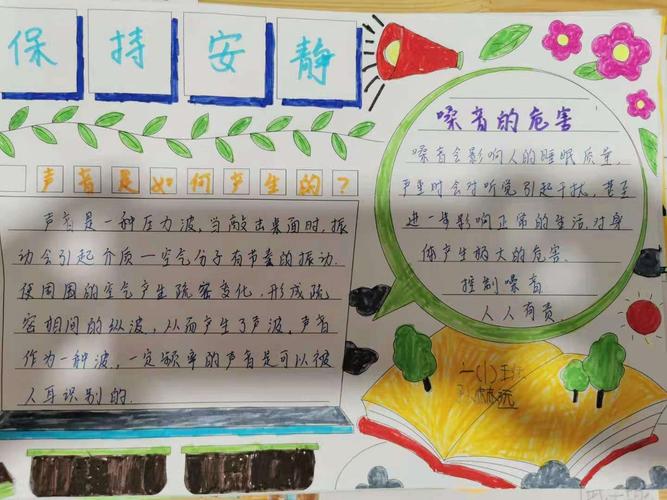 保持安静
声音是如何产生的?
声音是一种压力波,当敲击桌面时,振
动会引起介质一空气分子有节奏的振动.
使周围的空气产生疏密变化,形成疏
密相间的纵波,从而产生了声波,声音
作为一种波,一定频率的声音是可以被
人耳识别的.
噪音的危害
噪音会影响人的睡眠质量,
严重时会对听觉引起干扰,甚至
进一步影响正常的生活.对身
体产生极大的危害.
控制噪音
人人有责.
一(1)班